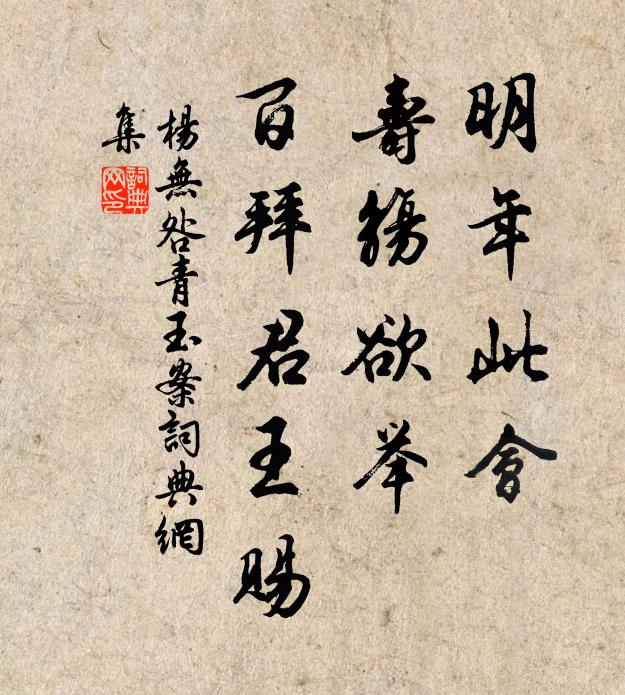 明年此會
壽觴欲举
百拜君王賜
楊無咎青玉案詞典網
集
詞典
网印